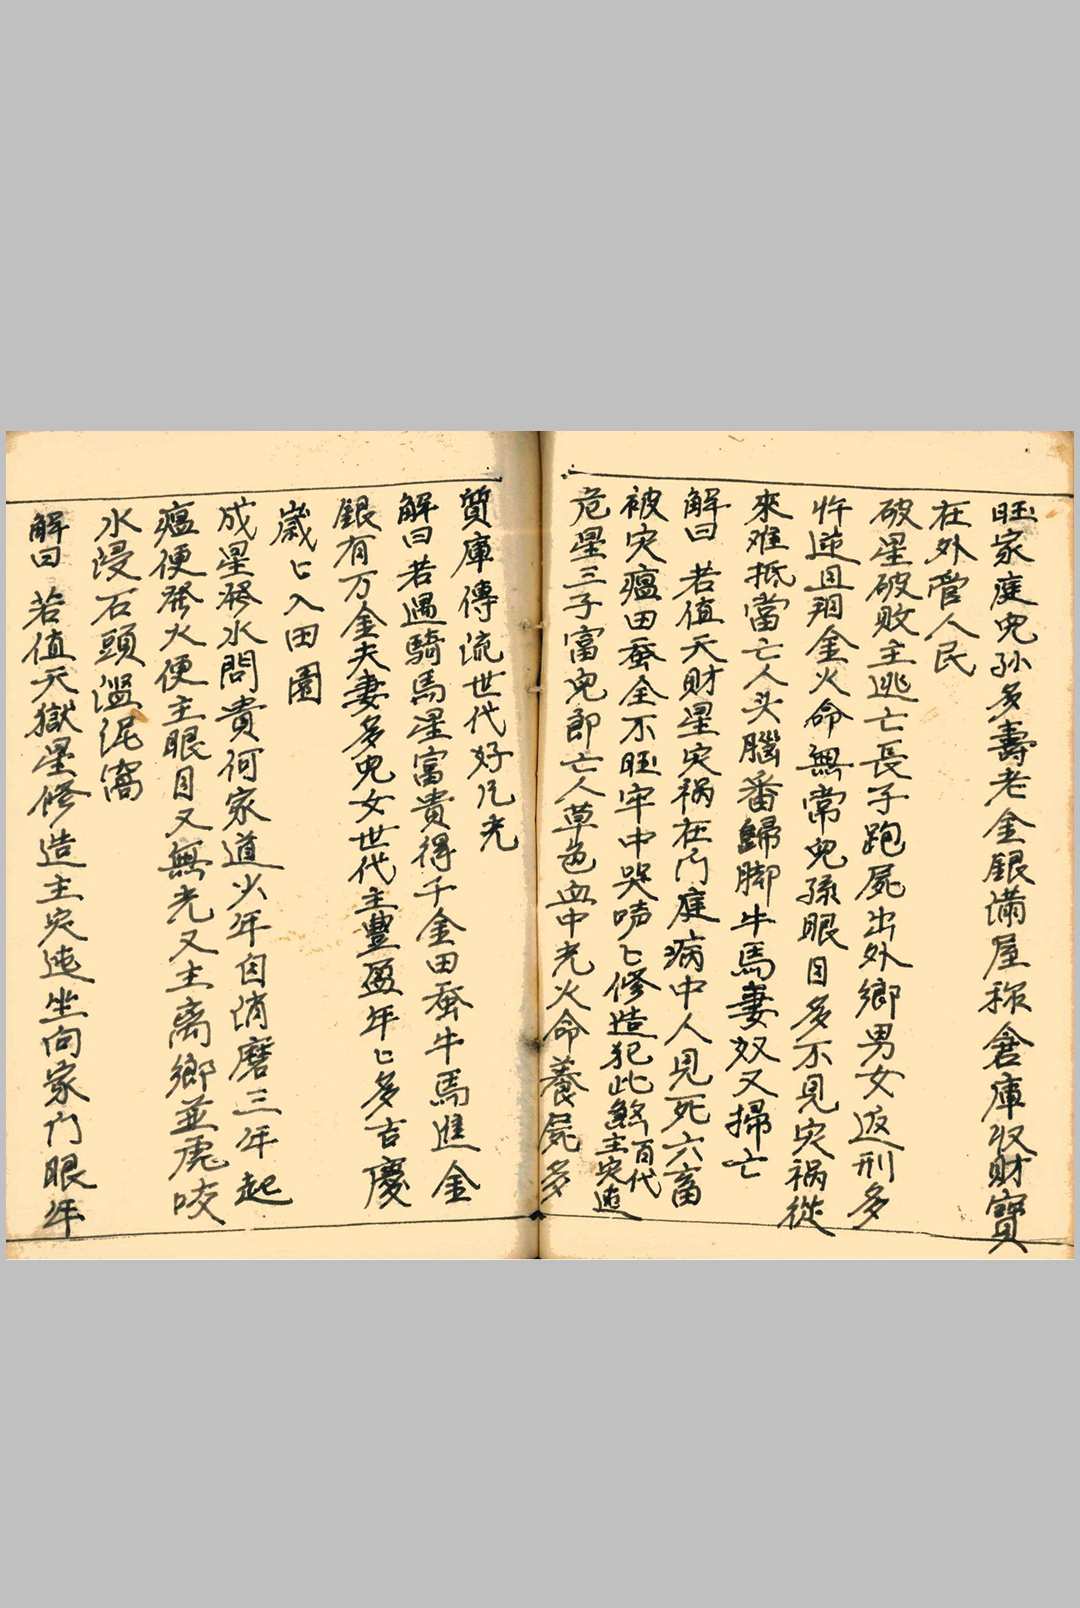 旺家庭児孙多壽老金銀满屋称倉庫収財寶
在外管人民
破星破敗主逃亡長子跑屍出外鄉男女返刑多
忤逆且瘟金火命無常児孫眼目多不見灾祸從
來难抵當亡人头腦番歸脚牛馬妻奴又掃亡
解曰 若值天財星灾祸在门庭病中人見死六畜
被灾瘟田蚕全不旺牢中哭啼匕修造犯此煞百代主灾迍
危星三子富児郎亡人草色血中光火命養屍多
質庫傳流世代好风光
解曰若遇騎馬星富貴得千金田蚕牛馬進金
銀有万金夫妻多児女世代主豐盈年匕多吉慶
歲匕入田園
成星發水問貴何家道少年自消磨三年起
瘟便發火便主眼目又無光又主离鄉並虎咬
水浸石頭滥泥窩
解曰 若值天獄星修造主灾迍坐向家门眼年